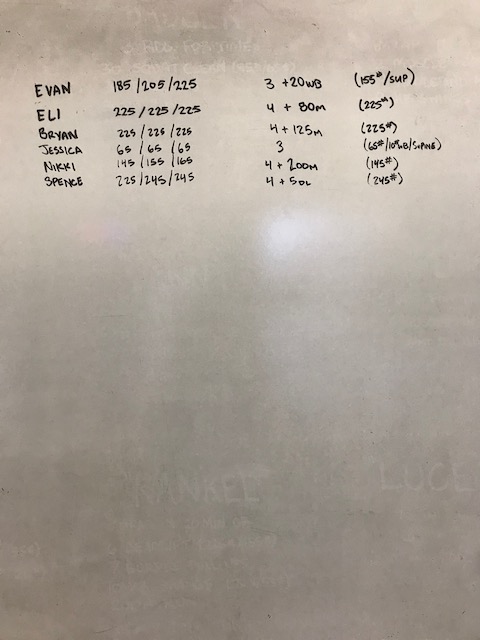 EVAN 185/205/225 3 +20WB (155#/SUP)
ELI 225/225/225 4 + 80M (225#)
BRYAN 225/225/225 4+125M (225#)
JESSICA 65/65/65 3 (65#/10#WB/SUPINE)
NIKKI 145/155/165 4+200M (145#)
SPENCE 225/245/245 4+5DL (245#)
RANKEL LUCE